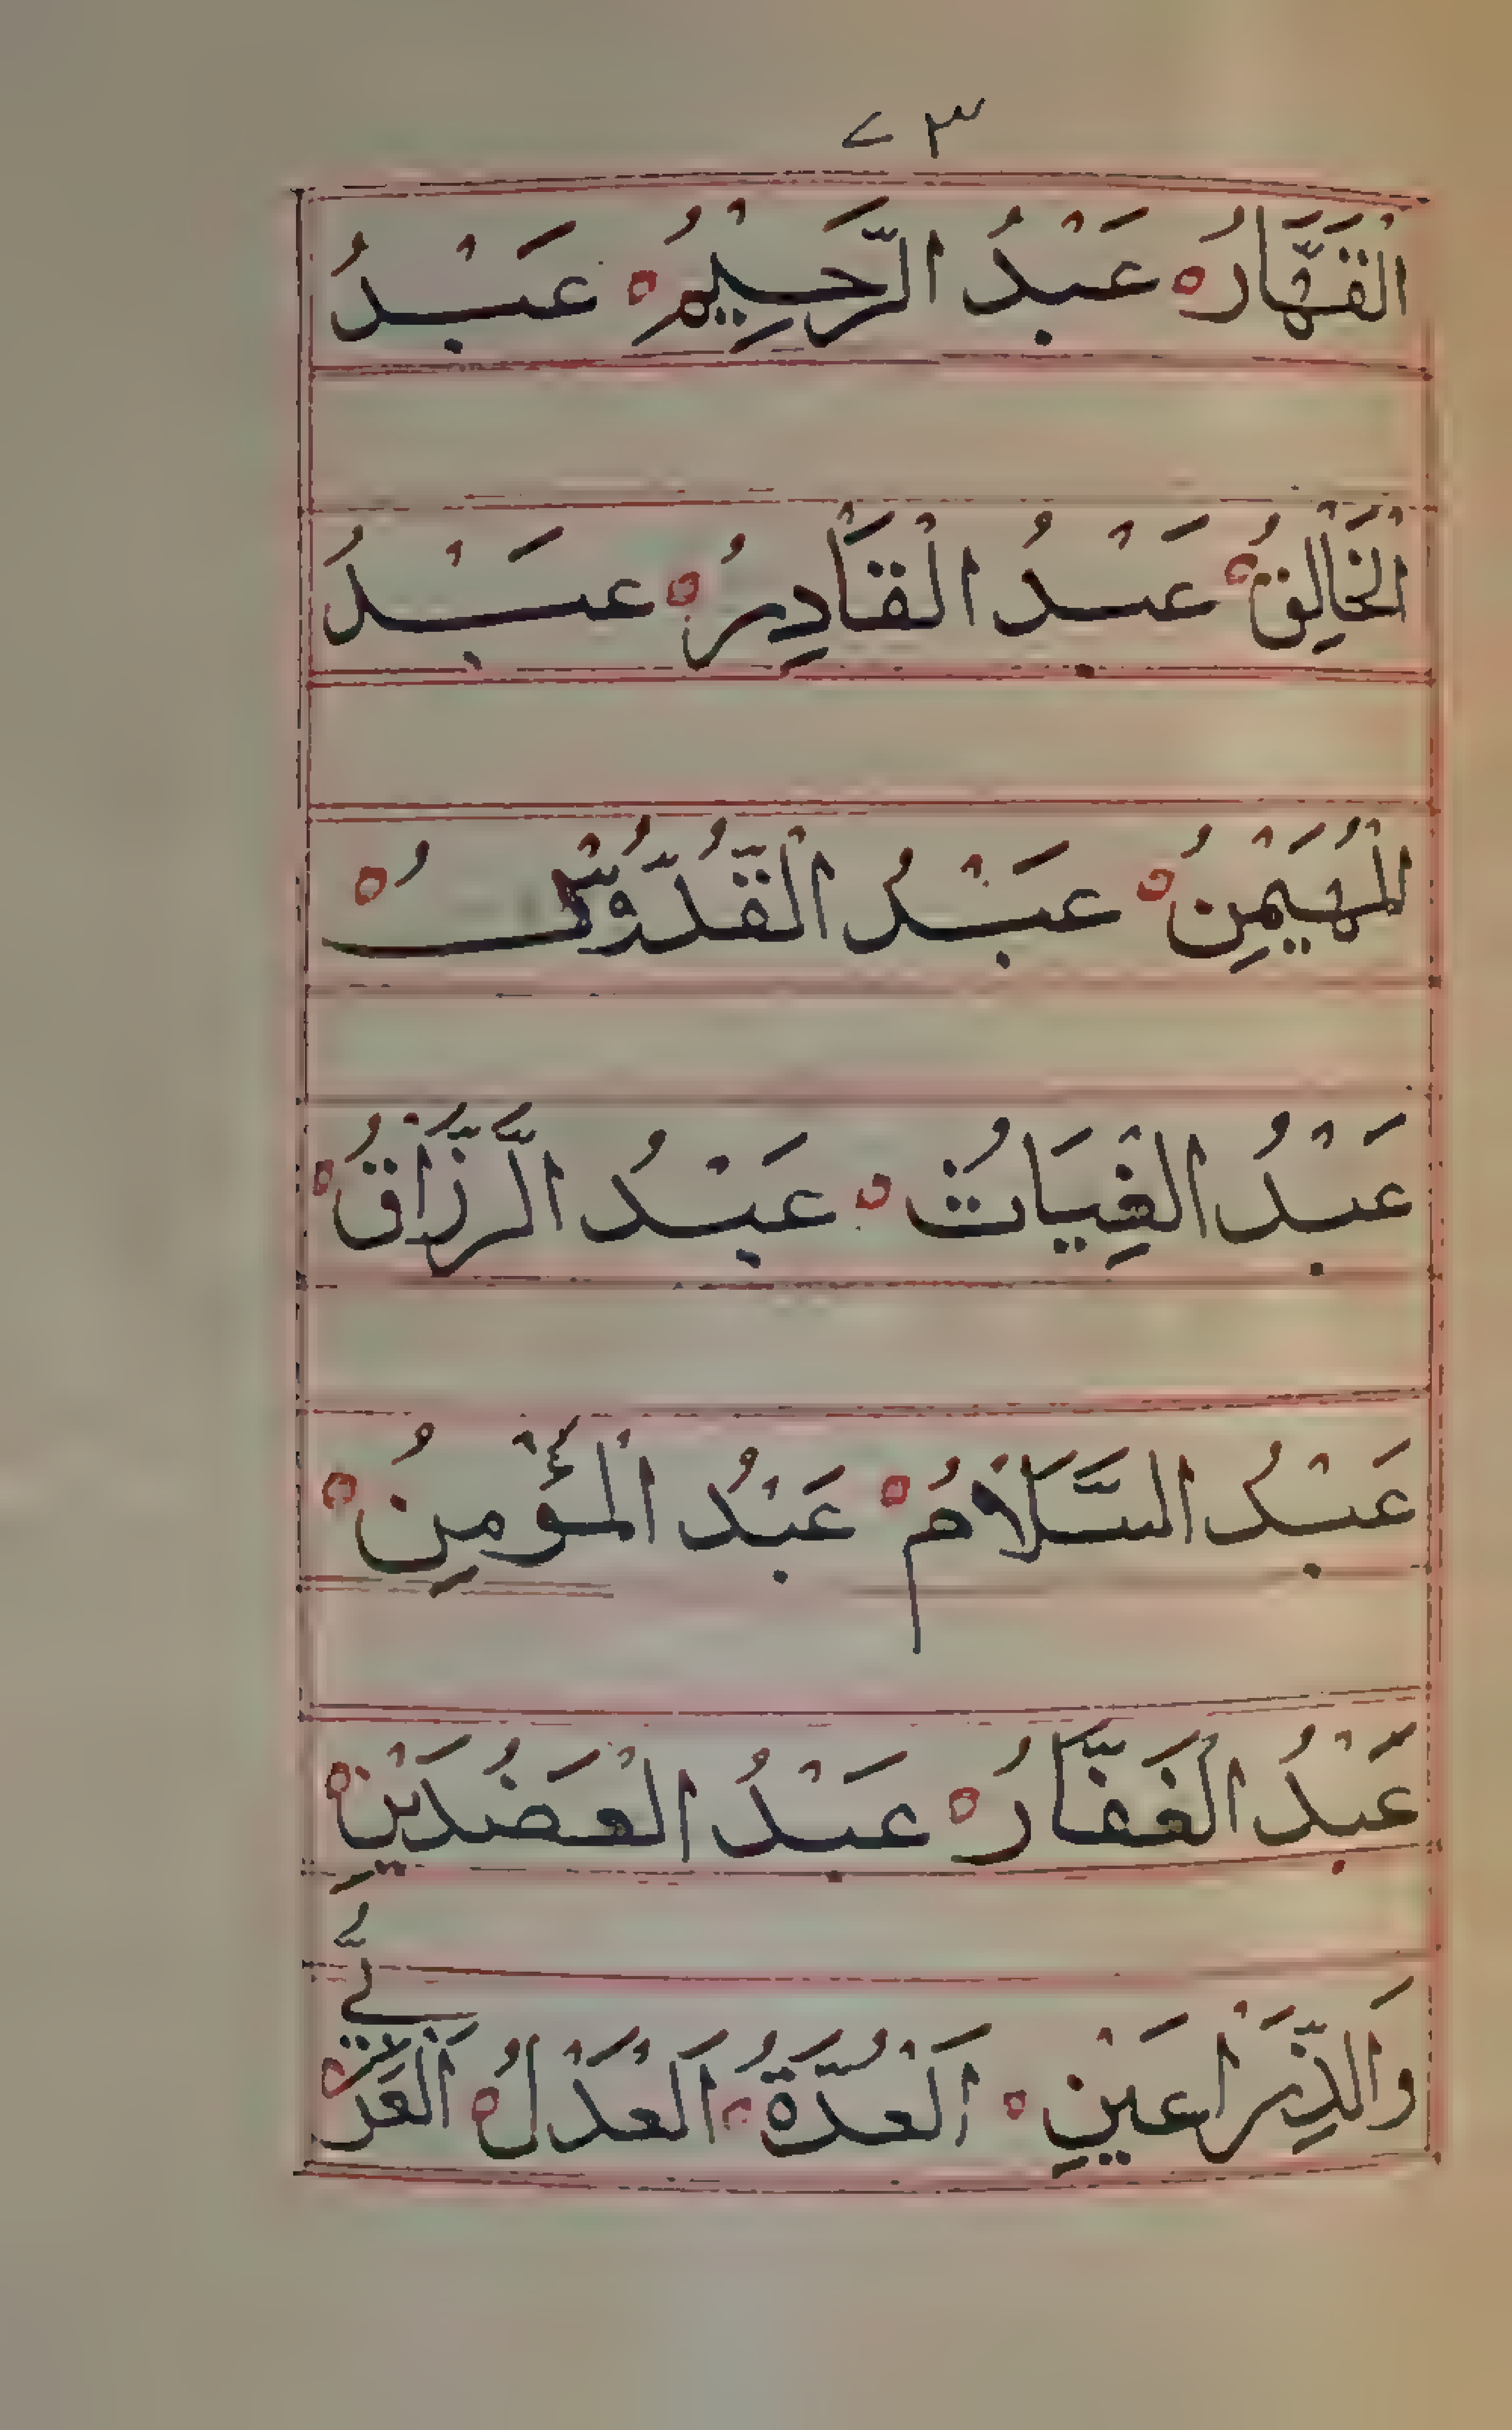 ٧٣
الْقَهَّارُ ه عَبْدُ الرَّحِيْمُ ه عَبْدُ
الْخَالِقُ ه عَبْدُ الْقَادِرُ ه عَبْدُ
الْمُهَيْمِنُ ه عَبْدُ الْقُدُّوْسُ ه
عَبْدُ الْغِيَاتُ ه عَبْدُ الرَّزَّاقُ ه
عَبْدُ السَّلَامُ ه عَبْدُ الْمُؤْمِنُ ه
عَبْدُ الْغَفَّارُ ه عَبْدُ الْعَضُدَيْنِ ه
وَالذِّرَاعَيْنِ ه اَلْعُدَّةُ ه اَلْعَدْلُ ه